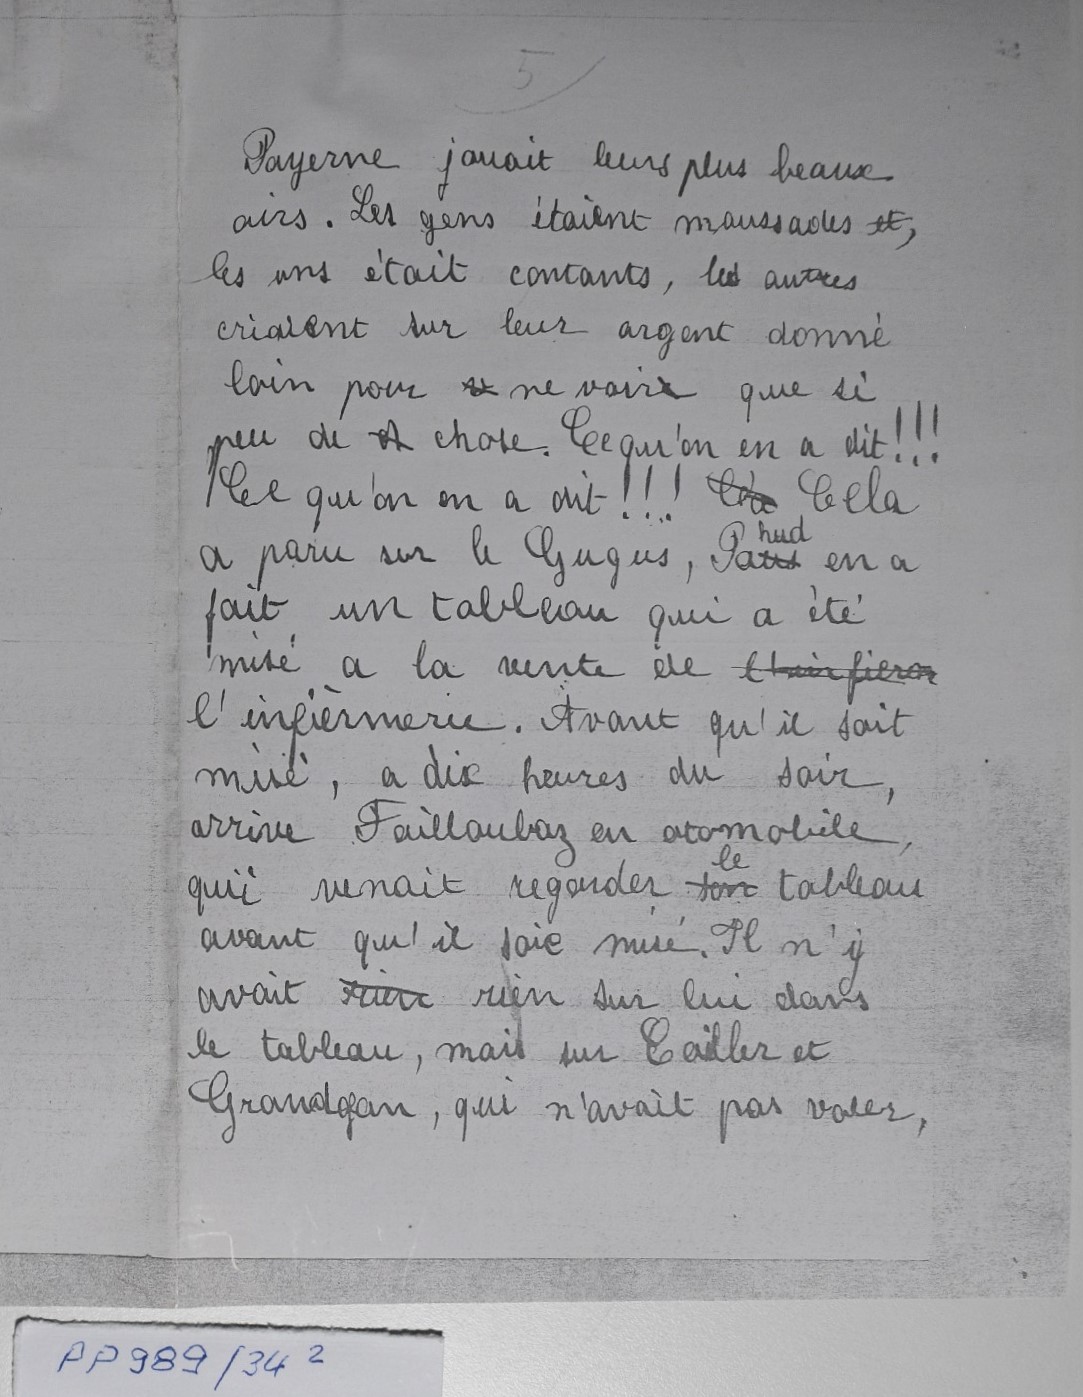 5
Payerne jouait leurs plus beaux
airs. Les gens étaient maussades et,
les uns était contants, les autres
criaient sur leur argent donné
loin pour ne voir que si
peu de chose. Ce qu'on en a dit!!!
Ce qu'on en a dit!!! Cela
a paru sur le Gugus, Pahud en a
fait un tableau qui a été
misé a la vente de
l'infièrmerie. Avant qu'il soit
misé, a dix heures du soir,
arrive Failloubaz en otomobile,
qui venait regarder le tableau
avant qu'il soie misé. Il n'y
avait rien sur lui dans
le tableau, mais sur Cailler et
Grandgan, qui n'avait pas voler,
PP989/34 2